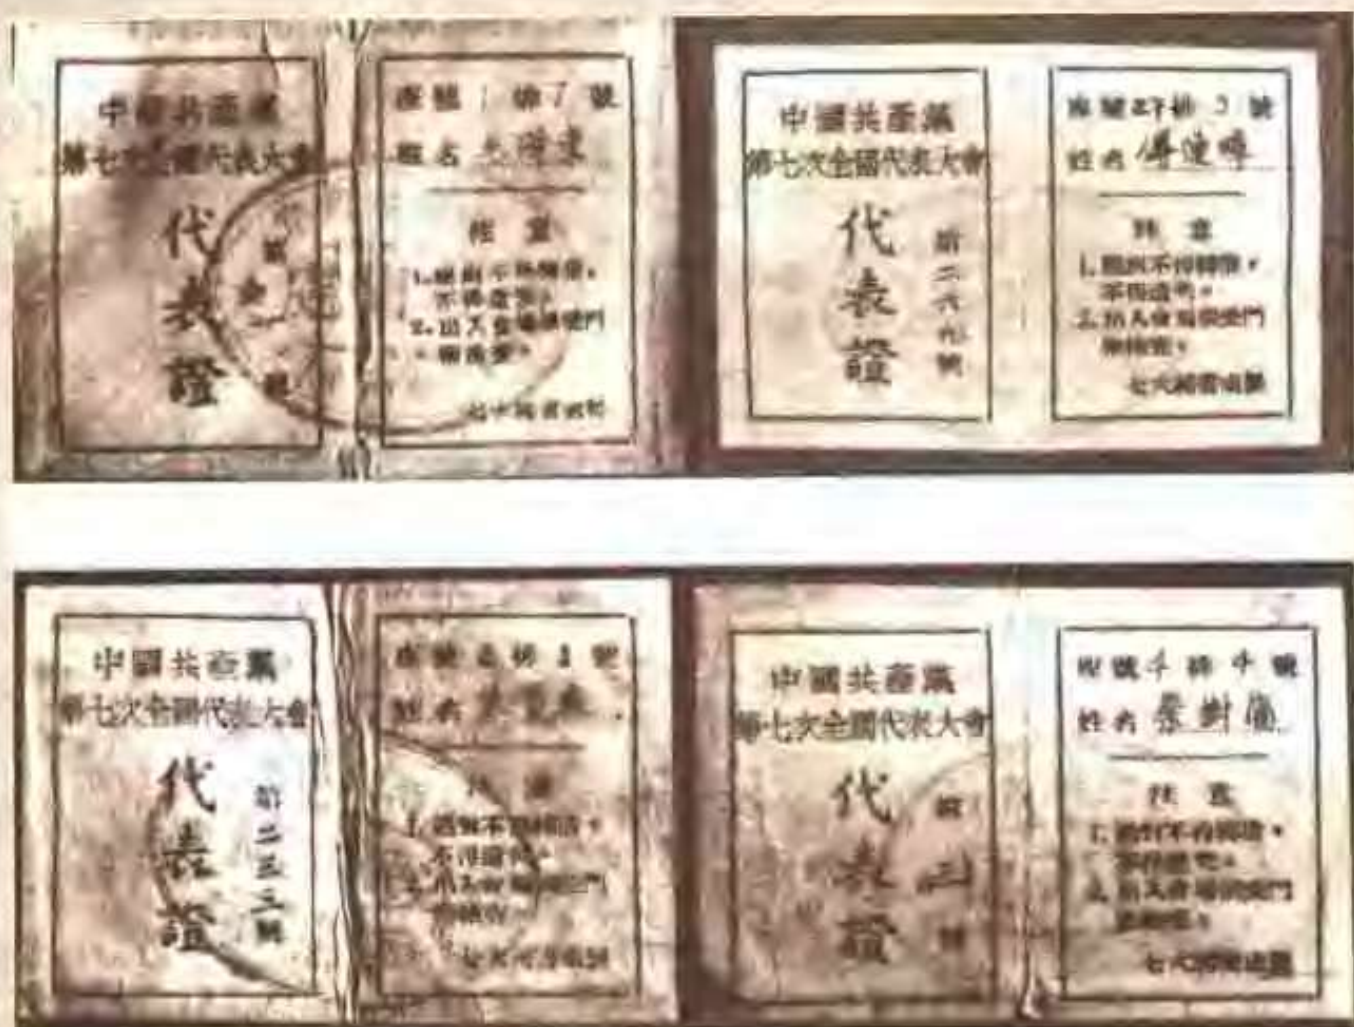 中國共產黨
第七次全國代表大會
代表證
座號1排7號
姓名
注意
1.絕對不得轉借,
不得遺失。
2.出入會場須受門
崗檢查。
七大秘書處製
中國共產黨
第七次全國代表大會
代表證
第二六九號
座號27排3號
姓名 傅連暲
注意
1.絕對不得轉借,
不得遺失。
2.出入會場須受門
崗檢查。
七大秘書處製
中國共產黨
第七次全國代表大會
代表證
第二三三號
座號 排 號
姓名
1.絕對不得轉借,
不得遺失。
2.出入會場須受門
崗檢查。
七大秘書處製
中國共產黨
第七次全國代表大會
代表證
座號4排4號
姓名 蔡樹藩
注意
1.絕對不得轉借,
不得遺失。
2.出入會場須受門
崗檢查。
七大秘書處製